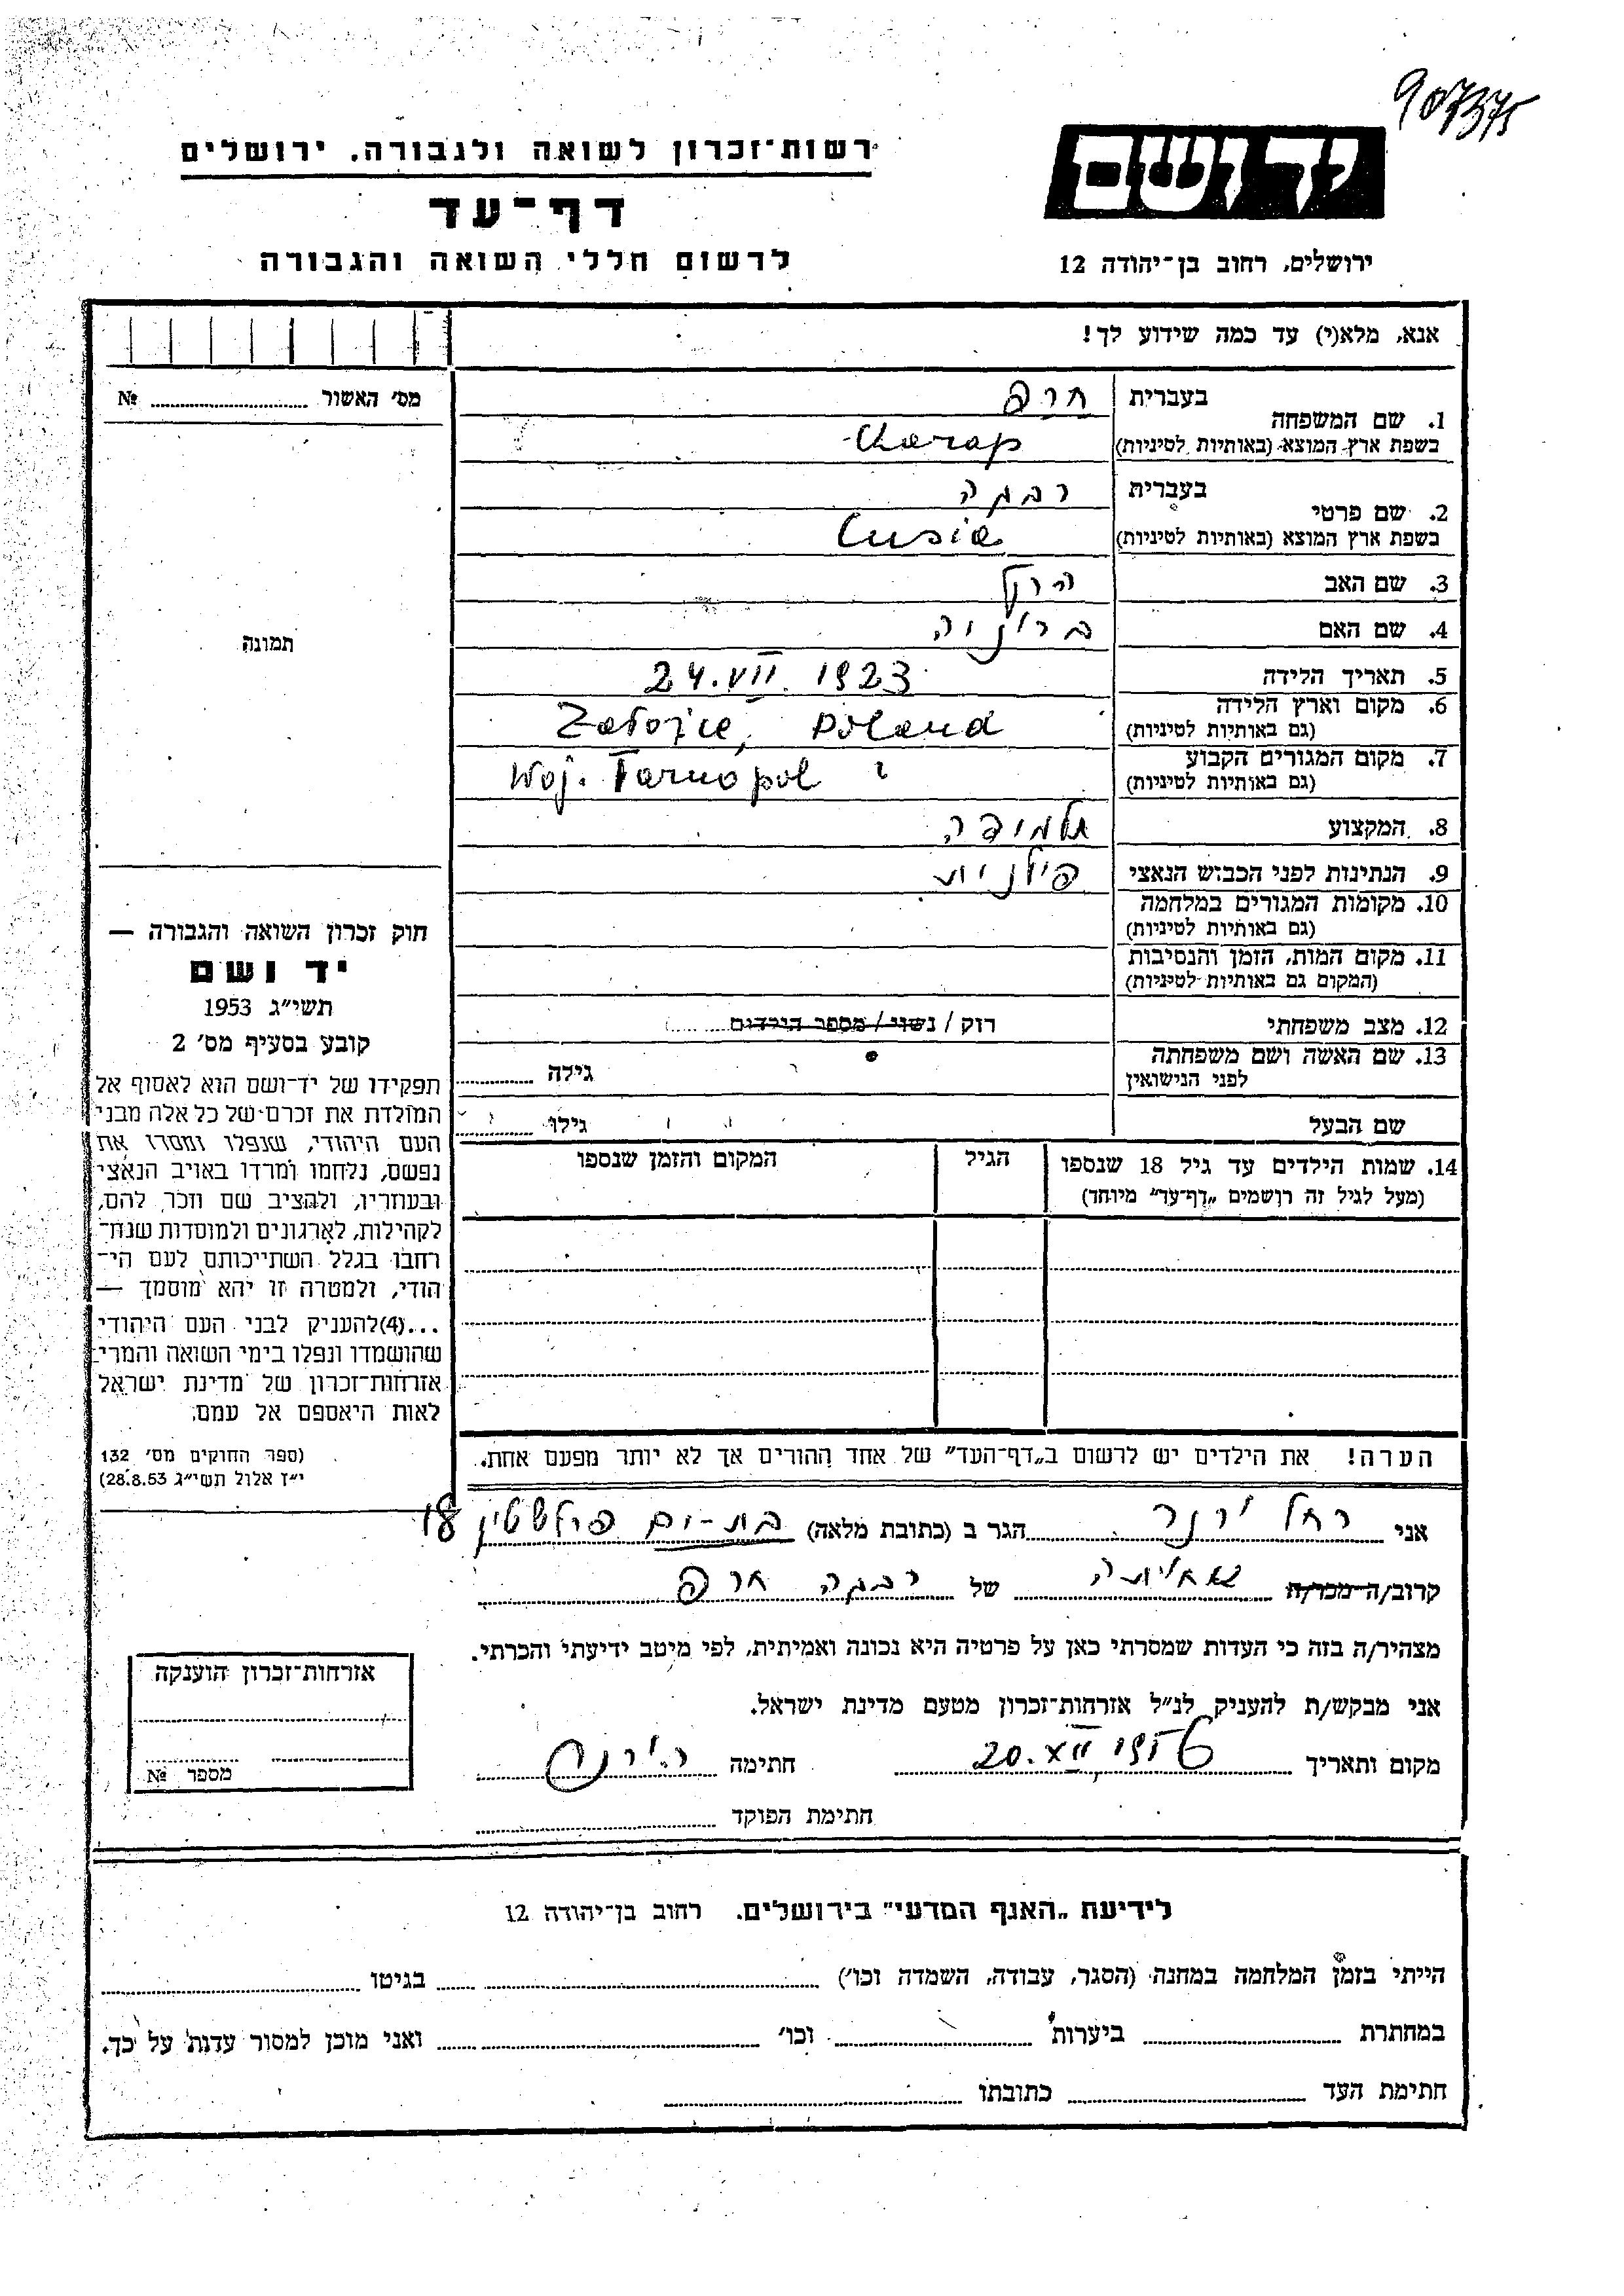 907375
יד ושם
ירושלים, רחוב בן־יהודה 12
רשות־זכרון לשואה ולגבורה, ירושלים
דף־עד
לרשום חללי השואה והגבורה
אנא, מלא(י) עד כמה שידוע לך!
1. שם המשפחה
בעברית חרפ
בשפת ארץ המוצא (באותיות לטיניות) Charap
2. שם פרטי
בעברית רבקה
בשפת ארץ המוצא (באותיות לטיניות) Cusia
3. שם האב
4. שם האם ברוניה
5. תאריך הלידה 24.VII.1923
6. מקום וארץ הלידה
(גם באותיות לטיניות) Załoźce, Poland
7. מקום המגורים הקבוע
(גם באותיות לטיניות) Woj. Tarnopol
8. המקצוע תלמידה
9. הנתינות לפני הכבוש הנאצי פולנית
10. מקומות המגורים במלחמה
(גם באותיות לטיניות)
11. מקום המות, הזמן והנסיבות
(המקום גם באותיות לטיניות)
12. מצב משפחתי רוק / נשוי / מספר הילדים
13. שם האשה ושם משפחתה
לפני הנישואין גילה
שם הבעל גילו
14. שמות הילדים עד גיל 18 שנספו הגיל המקום והזמן שנספו
(מעל לגיל זה רושמים „דף־עד" מיוחד)
הערה! את הילדים יש לרשום ב„דף־העד" של אחד ההורים אך לא יותר מפעם אחת.
מס' האשור №
תמונה
חוק זכרון השואה והגבורה —
יד ושם
תשי"ג 1953
קובע בסעיף מס' 2
תפקידו של יד־ושם הוא לאסוף אל
המולדת את זכרם של כל אלה מבני
העם היהודי, שנפלו ומסרו את
נפשם, נלחמו ומרדו באויב הנאצי
ובעוזריו, ולהציב שם וזכר להם,
לקהילות, לארגונים ולמוסדות שנח־
רבו בגלל השתייכותם לעם הי־
הודי, ולמטרה זו יהא מוסמך —
...(4) להעניק לבני העם היהודי
שהושמדו ונפלו בימי השואה והמרי
אזרחות־זכרון של מדינת ישראל
לאות היאספם אל עמם.
(ספר החוקים מס' 132
י"ז אלול תשי"ג 28.8.53)
אני רחל הגר ב (כתובת מלאה) בת-ים 18
קרוב/ה מכר/ה אחותה של רבקה חרפ
מצהיר/ה בזה כי העדות שמסרתי כאן על פרטיה היא נכונה ואמיתית, לפי מיטב ידיעתי והכרתי.
אני מבקש/ת להעניק לנ"ל אזרחות־זכרון מטעם מדינת ישראל.
מקום ותאריך 20.XII 1956 חתימה
חתימת הפוקד
אזרחות־זכרון הוענקה
מספר №
לידיעת „האגף המדעי" בירושלים, רחוב בן־יהודה 12
הייתי בזמן המלחמה במחנה (הסגר, עבודה, השמדה וכו') בגיטו
במחתרת ביערות וכו' ואני מוכן למסור עדות על כך.
חתימת העד כתובתו